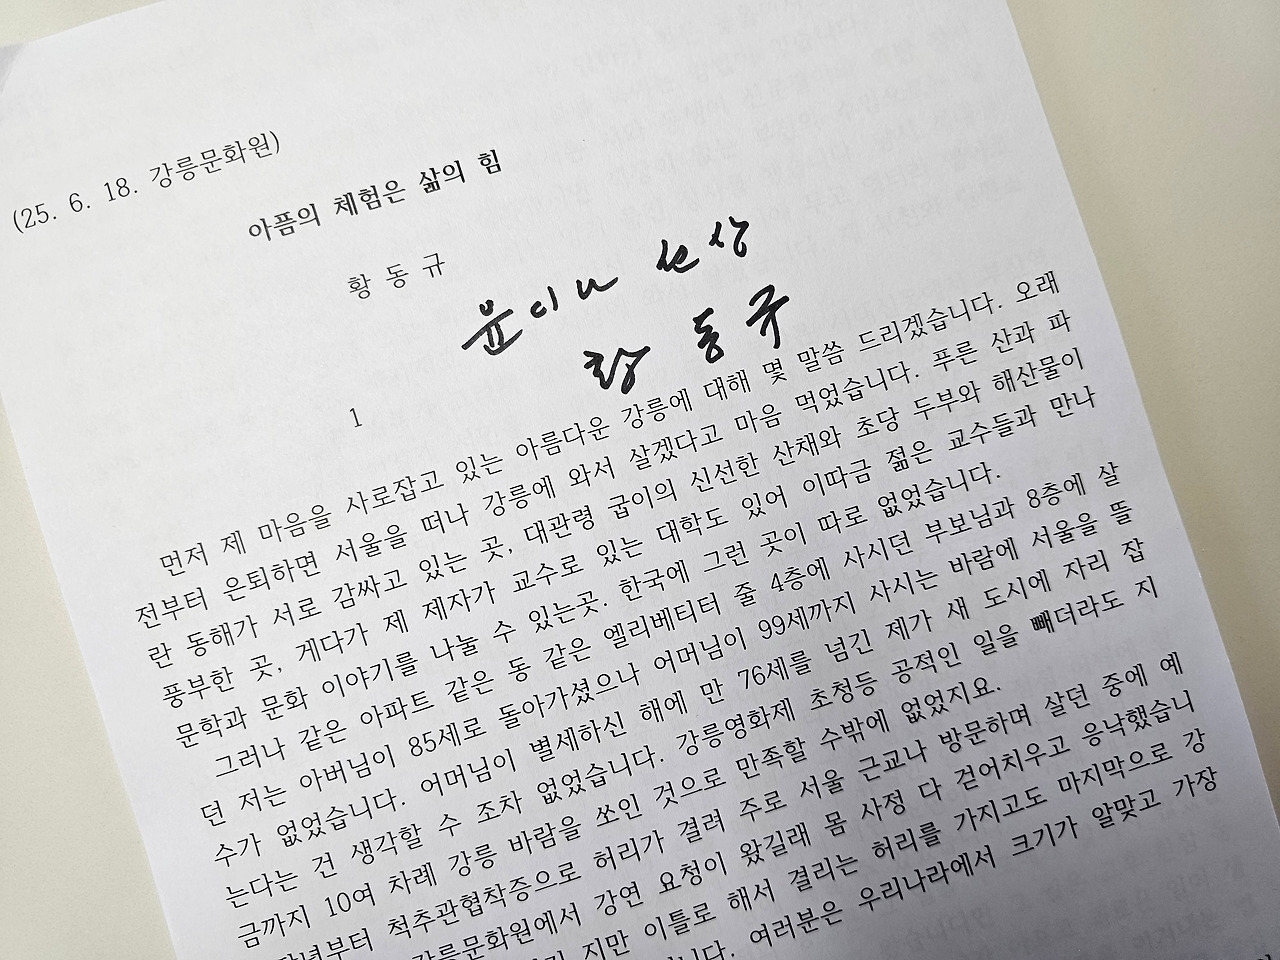 (25. 6. 18. 강릉문화원)
아픔의 체험은 삶의 힘
황 동 규
윤이나 선상
황 동 규
1
먼저 제 마음을 사로잡고 있는 아름다운 강릉에 대해 몇 말씀 드리겠습니다. 오래
전부터 은퇴하면 서울을 떠나 강릉에 와서 살겠다고 마음 먹었습니다. 푸른 산과 파
란 동해가 서로 감싸고 있는 곳, 대관령 굽이의 신선한 산채와 초당 두부와 해산물이
풍부한 곳, 게다가 제 제자가 교수로 있는 대학도 있어 이따금 젊은 교수들과 만나
문학과 문화 이야기를 나눌 수 있는곳. 한국에 그런 곳이 따로 없었습니다.
그러나 같은 아파트 같은 동 같은 엘리베터터 줄 4층에 사시던 부보님과 8층에 살
던 저는 아버님이 85세로 돌아가셨으나 어머님이 99세까지 사시는 바람에 서울을 뜰
수가 없었습니다. 어머님이 별세하신 해에 만 76세를 넘긴 제가 새 도시에 자리 잡
는다는 건 생각할 수 조차 없었습니다. 강릉영화제 초청등 공적인 일을 빼더라도 지
금까지 10여 차례 강릉 바람을 쏘인 것으로 만족할 수밖에 없었지요.
부터 척추관협착증으로 허리가 결려 주로 서울 근교나 방문하며 살던 중에 예
강릉문화원에서 강연 요청이 왔길래 몸 사정 다 걷어치우고 응낙했습니
지만 이틀로 해서 결리는 허리를 가지고도 마지막으로 강
니다. 여러분은 우리나라에서 크기가 알맞고 가장